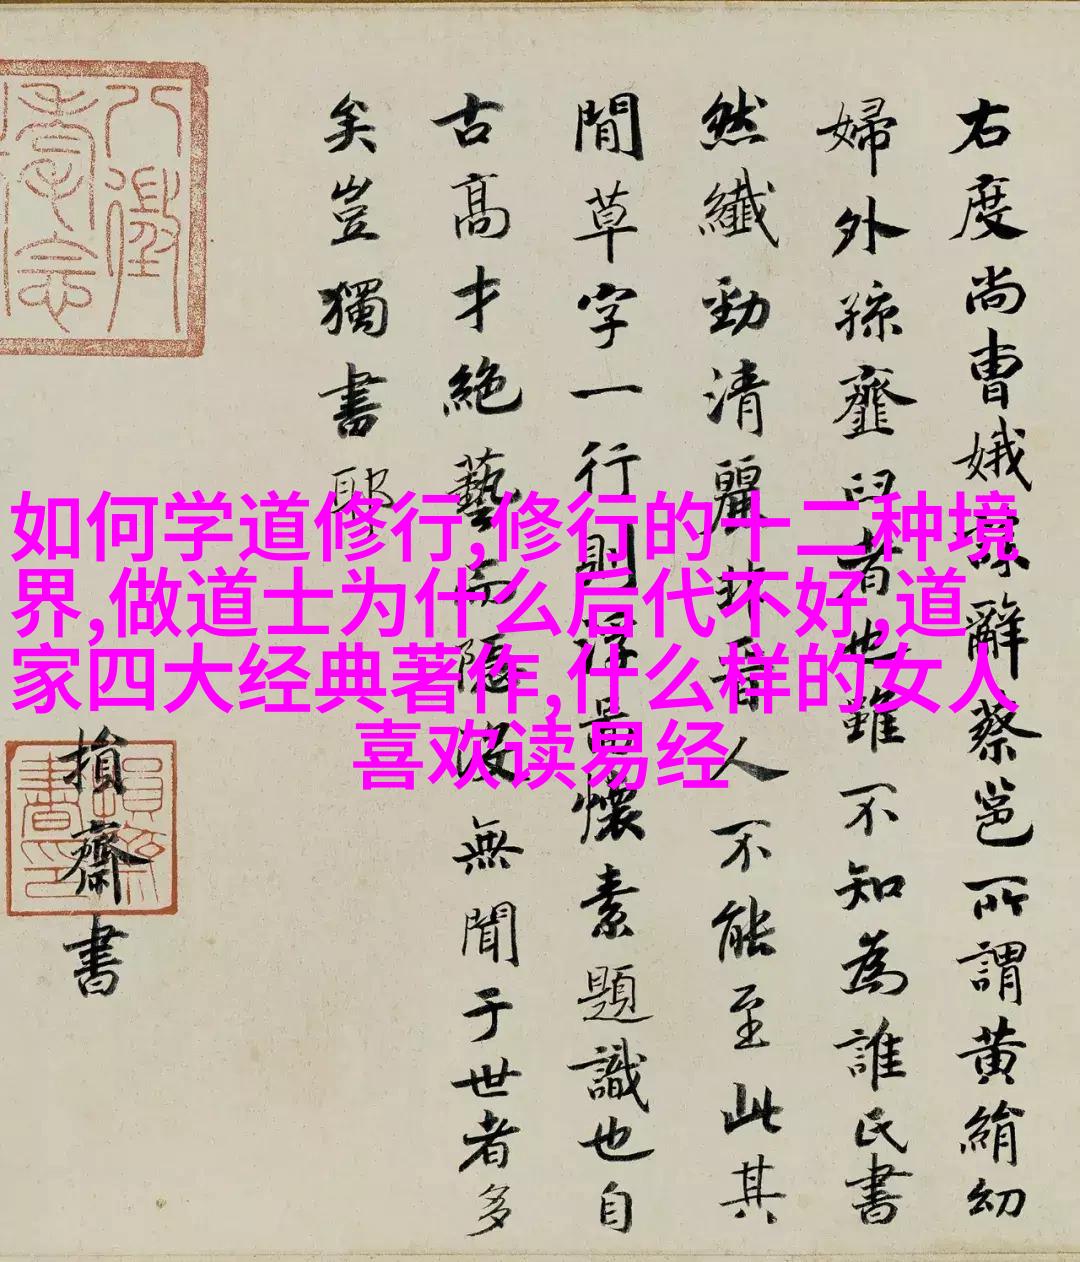 右度尚曹娥誄辭蔡邕所謂黄絹幼
婦外孫虀臼者也雖不知為誰氏書
然纖勁清麗非晉人不能至此其
間草字一行則淳是懷素題識也自
古高才絶藝而隱没無聞于世者多
矣豈獨書耶
損齋書
如何学道修行,修行的十二种境
界,做道士为什么后代不好,道
家四大经典著作,什么样的女人
喜欢读易经